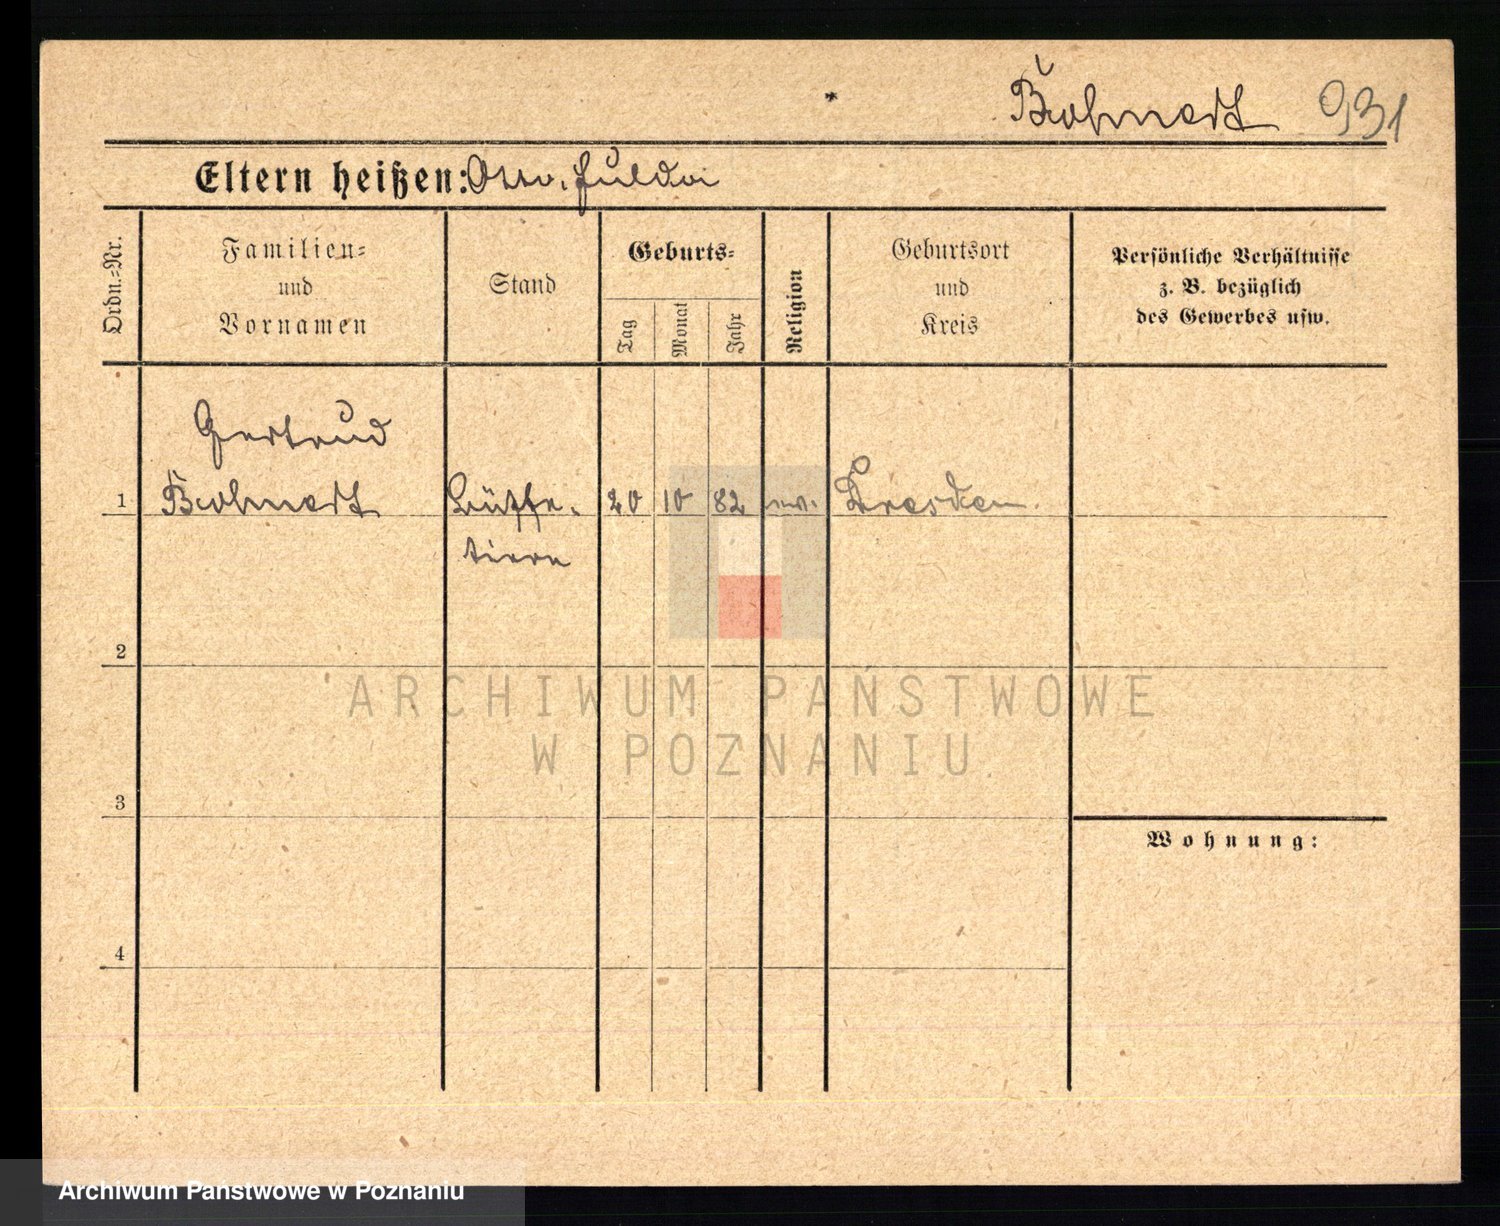 Bohnert 931
Eltern heißen: Otto, Hulda
Ordn.=Nr.
Familien=
und
Vornamen
Stand
Geburts=
Tag
Monat
Jahr
Religion
Geburtsort
und
Kreis
Persönliche Verhältnisse
z. B. bezüglich
des Gewerbes usw.
Gertrud
1 Bohnert Büffe- 20 10 82 ev. Dresden
tiere
2
ARCHIWUM PAŃSTWOWE
W POZNANIU
3
Wohnung:
4
Archiwum Państwowe w Poznaniu